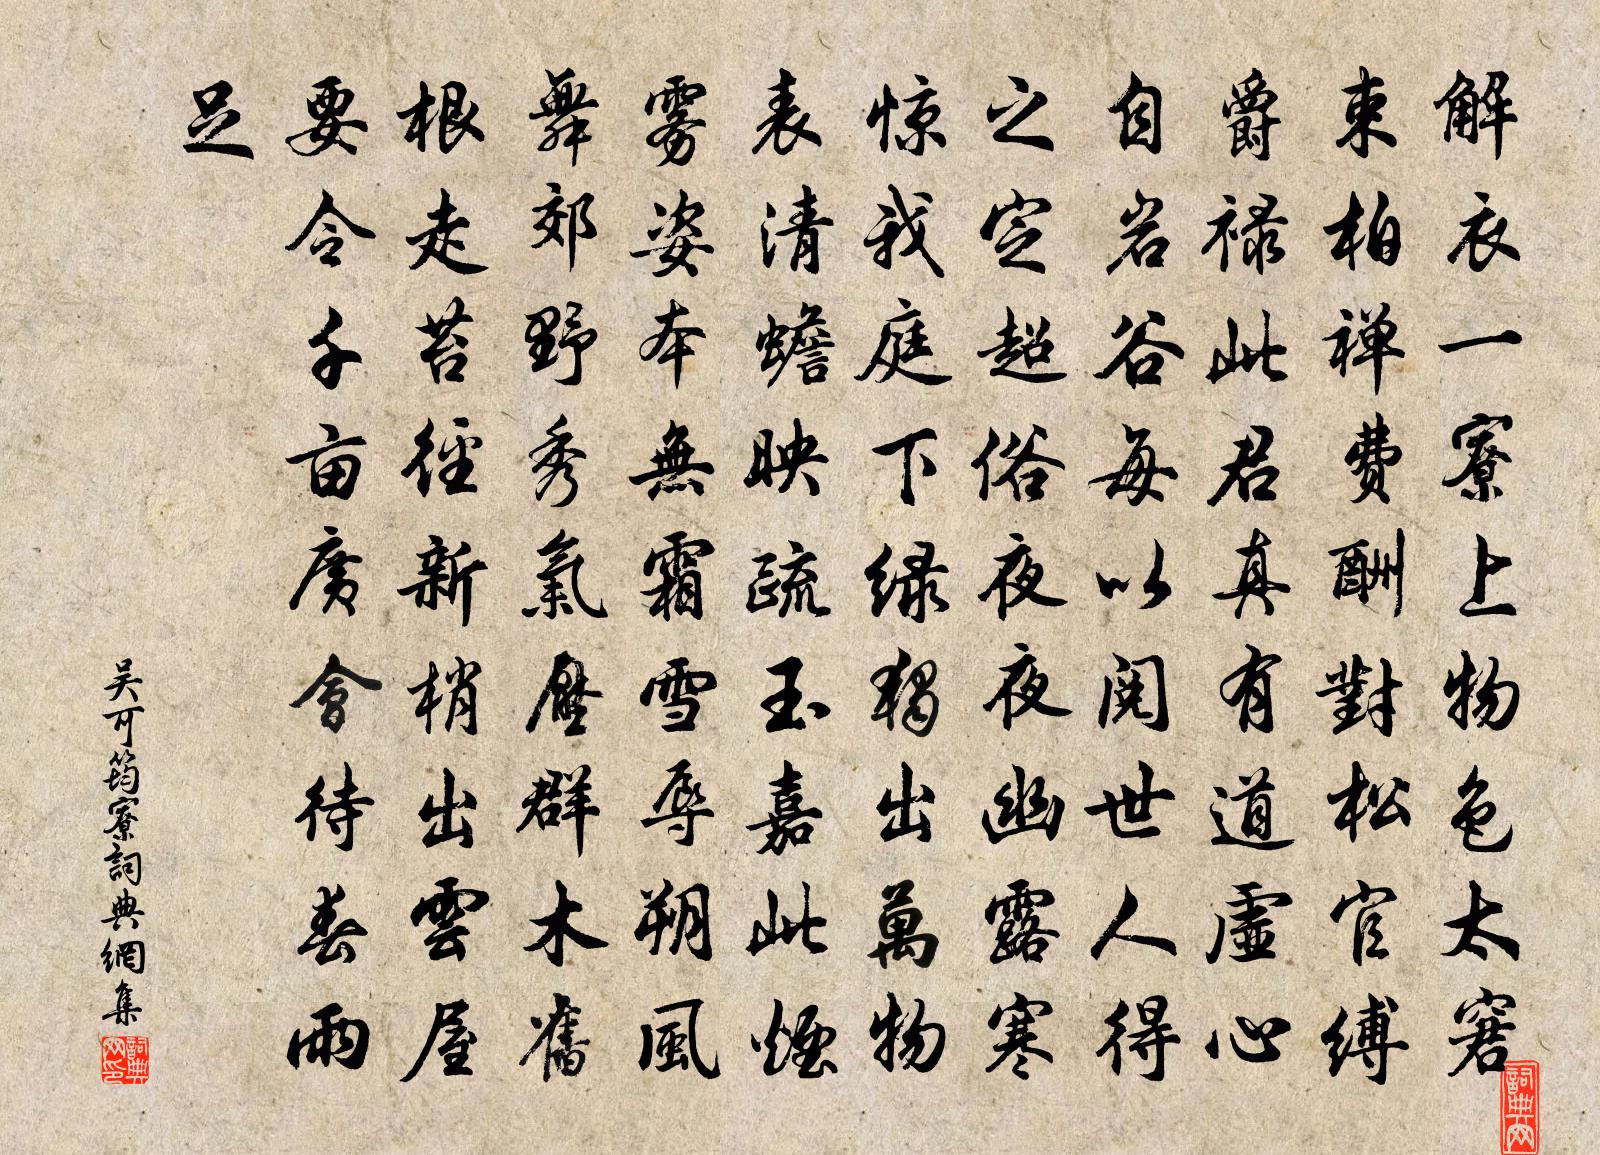 解衣一寮上物色太窘
束柏禅費酬對松官縛
爵禄此君真有道虛心
自岩谷每以閱世人得
之定超俗夜夜幽露寒
惊我庭下绿獨出萬物
表清蟾映疏玉嘉此煙
雾姿本無霜雪辱朔風
舞郊野秀氣壓群木舊
根走苔徑新梢出雲屋
要令千亩廣會待春雨
足
吴可筠寮詞典網集
詞典网印
詞典网